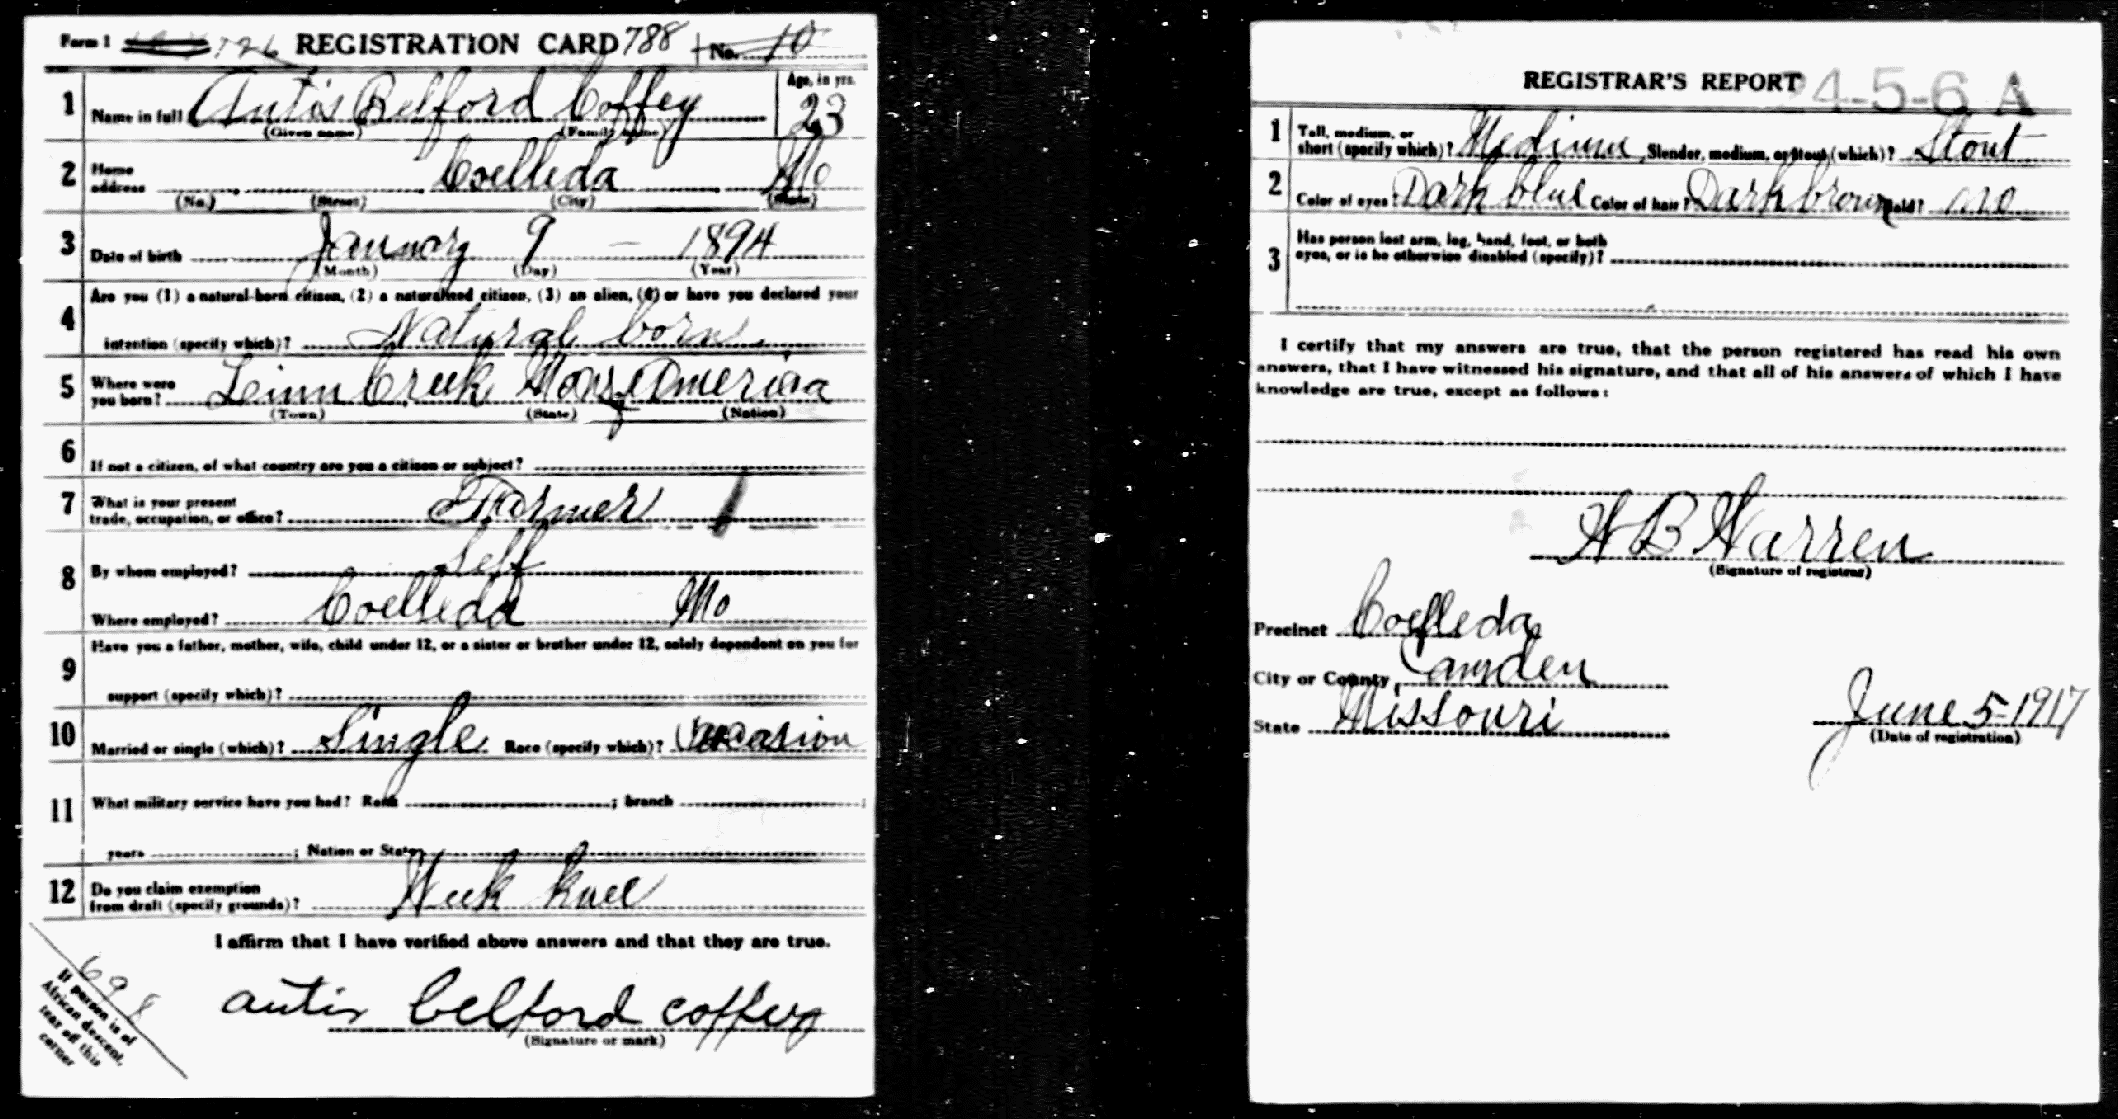 Form 1 726 REGISTRATION CARD 788 No. 10
1 Name in full Autis Belford Coffey Age, in yrs. 23
(Given name) (Family name)
2 Home address Coelleda Mo
(No.) (Street) (City) (State)
3 Date of birth January 9 — 1894
(Month) (Day) (Year)
4 Are you (1) a natural-born citizen, (2) a naturalized citizen, (3) an alien, (4) or have you declared your
intention (specify which)? Natural born
5 Where were you born? Leinn Creek America
(Town) (State) (Nation)
6 If not a citizen, of what country are you a citizen or subject?
7 What is your present
trade, occupation, or office? Farmer
8 By whom employed? Self
Where employed? Coelleda Mo
9 Have you a father, mother, wife, child under 12, or a sister or brother under 12, solely dependent on you for
support (specify which)?
10 Married or single (which)? Single Race (specify which)?
11 What military service have you had? Rank ; branch ;
years ; Nation or State
12 Do you claim exemption
from draft (specify grounds)? Week knee
I affirm that I have verified above answers and that they are true.
autis belford coffey
(Signature or mark)
698
If person is of
African descent,
tear off this
corner
REGISTRAR'S REPORT 24-5-6 A
1 Tall, medium, or
short (specify which)? Medium Slender, medium, or stout (which)? Stout
2 Color of eyes? Dark blue Color of hair? Dark brown Bald? no
3 Has person lost arm, leg, hand, foot, or both
eyes, or is he otherwise disabled (specify)?
I certify that my answers are true, that the person registered has read his own
answers, that I have witnessed his signature, and that all of his answers of which I have
knowledge are true, except as follows:
W B Warren
(Signature of registrar)
Precinct Coelleda
City or County Camden
State Missouri June 5-1917
(Date of registration)